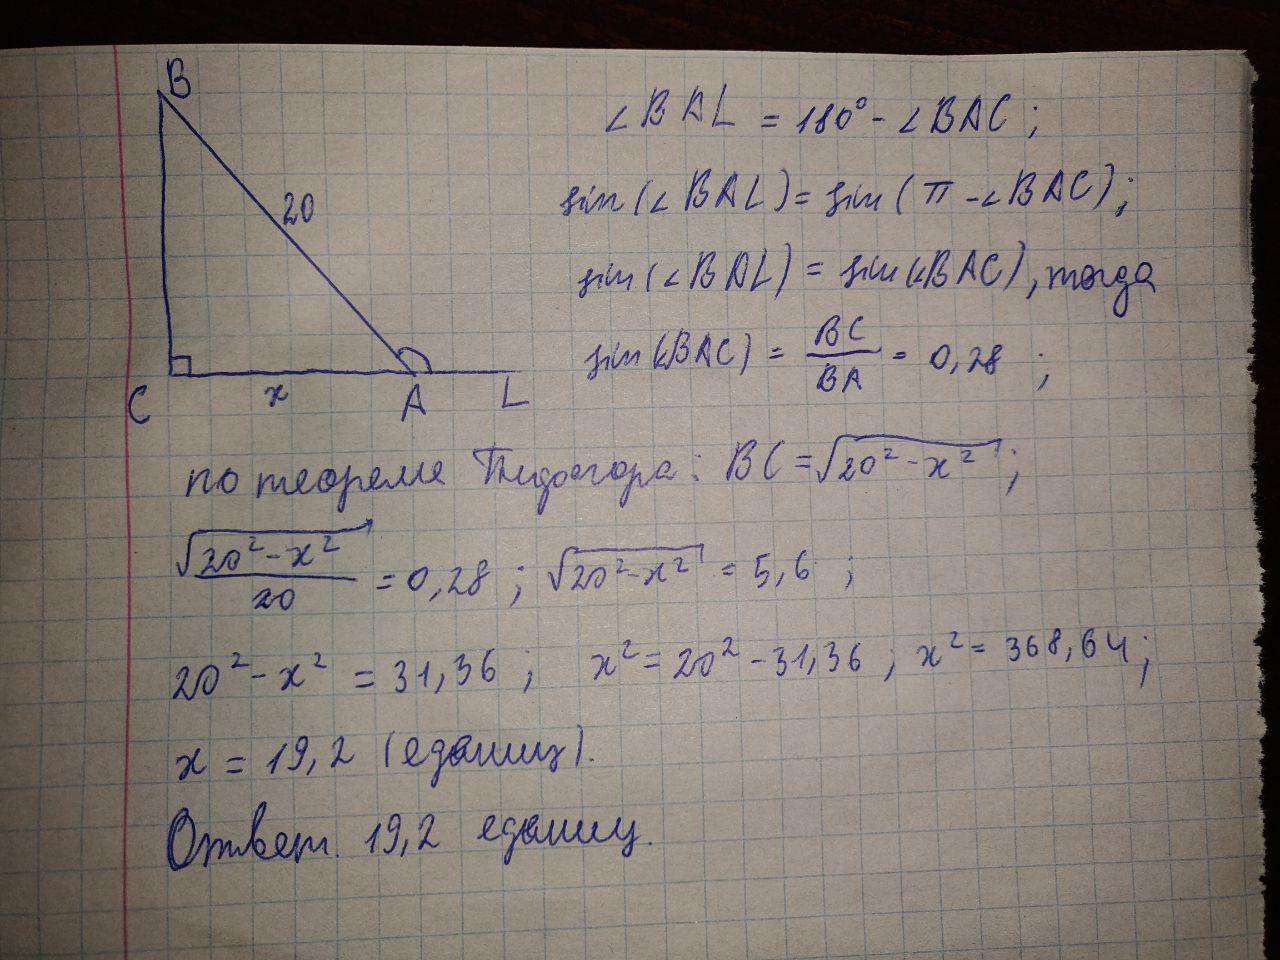 B
20
C
x
A
L
∠BAL = 180° - ∠BAC ;
sin(∠BAL) = sin(π - ∠BAC) ;
sin(∠BAL) = sin(∠BAC), тогда
sin(∠BAC) = BC/BA = 0,28 ;
по теореме Пифагора: BC = √(20² - x²) ;
√(20² - x²)/20 = 0,28 ; √(20² - x²) = 5,6 ;
20² - x² = 31,36 ; x² = 20² - 31,36 ; x² = 368,64 ;
x = 19,2 (единиц).
Ответ. 19,2 единиц.